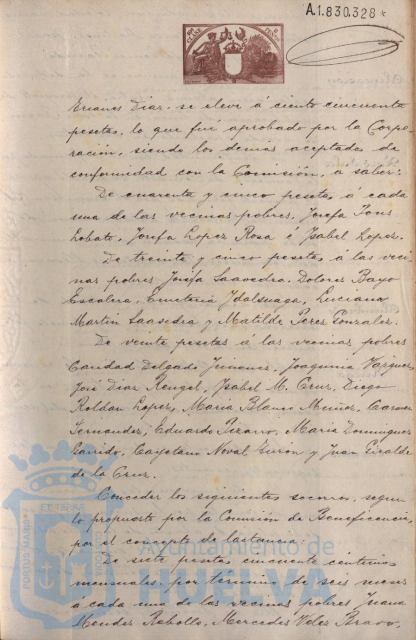 A.1.830.328*
Erianes Diaz, se eleve á ciento cincuenta
pesetas, lo que fué aprobado por la Corpo-
ración, siendo los demás aceptados de
conformidad con la Comisión, á saber:
De cuarenta y cinco pesetas, á cada
una de las vecinas pobres, Josefa Tous
Lobato, Josefa Lopez Rosa é Isabel Lopez.
De treinta y cinco pesetas, á las veci
nas pobres Josefa Saavedra, Dolores Bayo
Escalera, Emeteria Idalsuaga, Luciana
Martin Saavedra y Matilde Perez Gonzalez.
De veinte pesetas á las vecinas pobres
Caridad Delgado Jimenez, Joaquina Vazquez,
José Diaz Rengel, Isabel M. Cruz, Diego
Roldan Lopez, Maria Blanco Muñoz, Carmen
Fernandez, Eduardo Pizarro, Maria Dominguez
Garrido, Cayetano Noval Giron y Juan Giralde
de la Cruz.
Conceder los siguientes socorros, segun
lo propuesto por la Comisión de Beneficencia
por el concepto de lactancia:
De siete pesetas cincuenta centimos
mensuales, por término de seis meses
á cada una de las vecinas pobres Juana
Mendez Rebollo, Mercedes Velez Bravo,
PORTUS MARIS
Ayuntamiento de
HUELVA